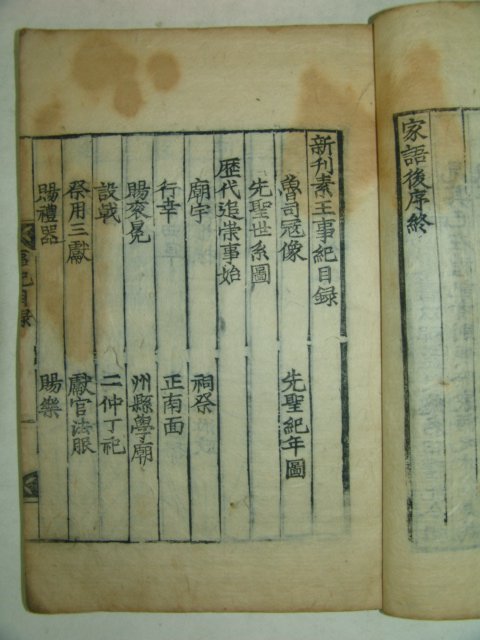 家語後序終
新刊素王事紀目録
魯司冦像　先聖紀年圖
先聖世系圖
歷代追崇事始
廟宇　祠祭
行幸　正南面
賜衮冕　州縣學廟
設戟　二仲丁祀
祭用三獻　獻官法服
賜禮器　賜樂
事紀目録　一